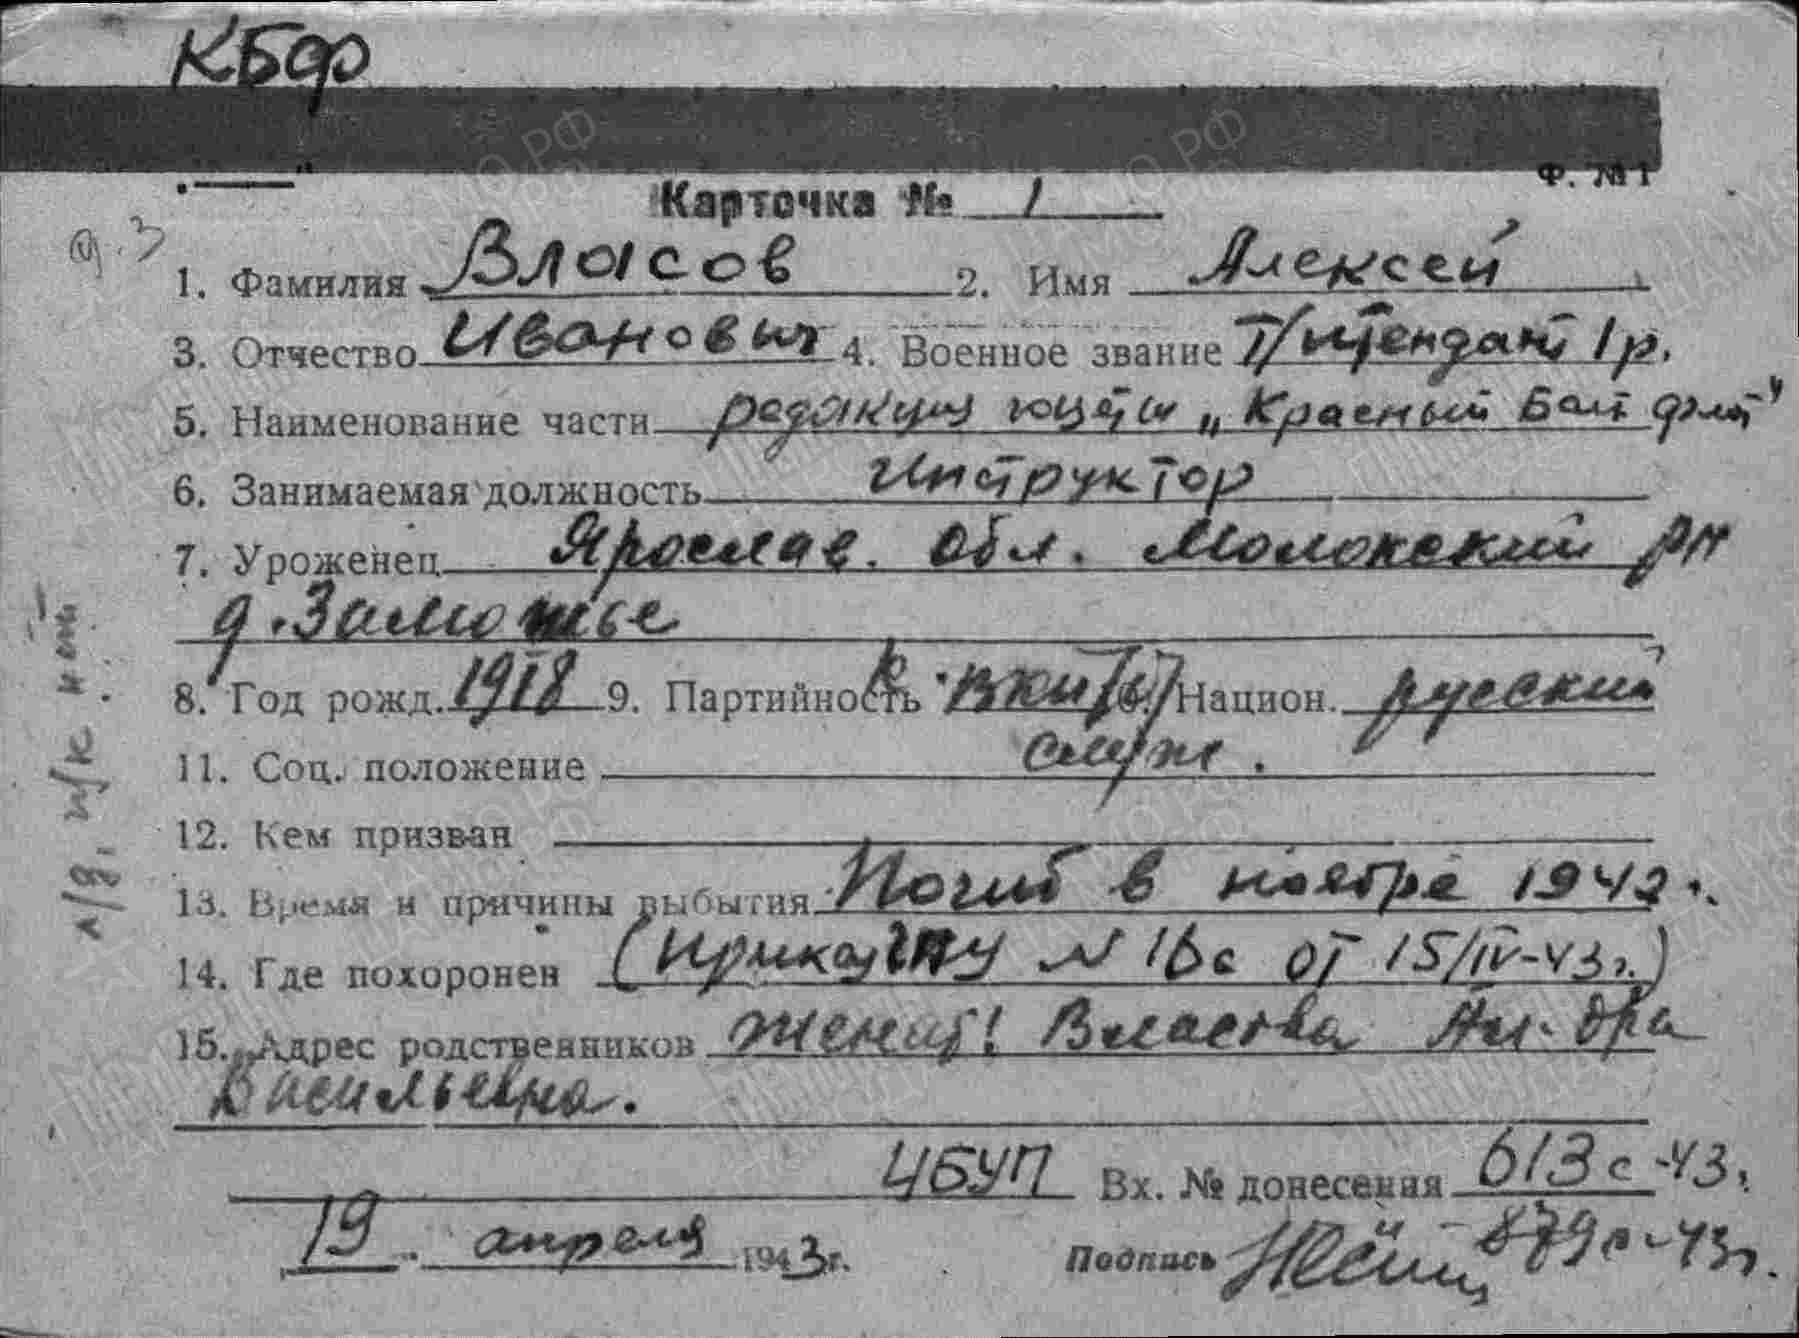 КБФ
Ф. № 1
Карточка № 1
д. 3
1. Фамилия Власов 2. Имя Алексей
3. Отчество Иванович 4. Военное звание Т/интендант 1 р.
5. Наименование части редакция газеты „Красный Балт флот"
6. Занимаемая должность Инструктор
7. Уроженец Ярослав. обл. Моложский рн
д. Заможье
8. Год рожд. 1918 9. Партийность к. ВКП(б) Национ. русский
11. Соц. положение служ.
12. Кем призван
13. Время и причины выбытия Погиб в ноябре 1942 г.
14. Где похоронен (Приказ ГПУ N 16с от 15/IV-43 г.)
15. Адрес родственников Женат! Власова Ал-дра
Васильевна.
ЦБУП Вх. № донесения 613с-43г.
879с-43г.
19 апреля 1943 г. Подпись
л/д, п/к нет